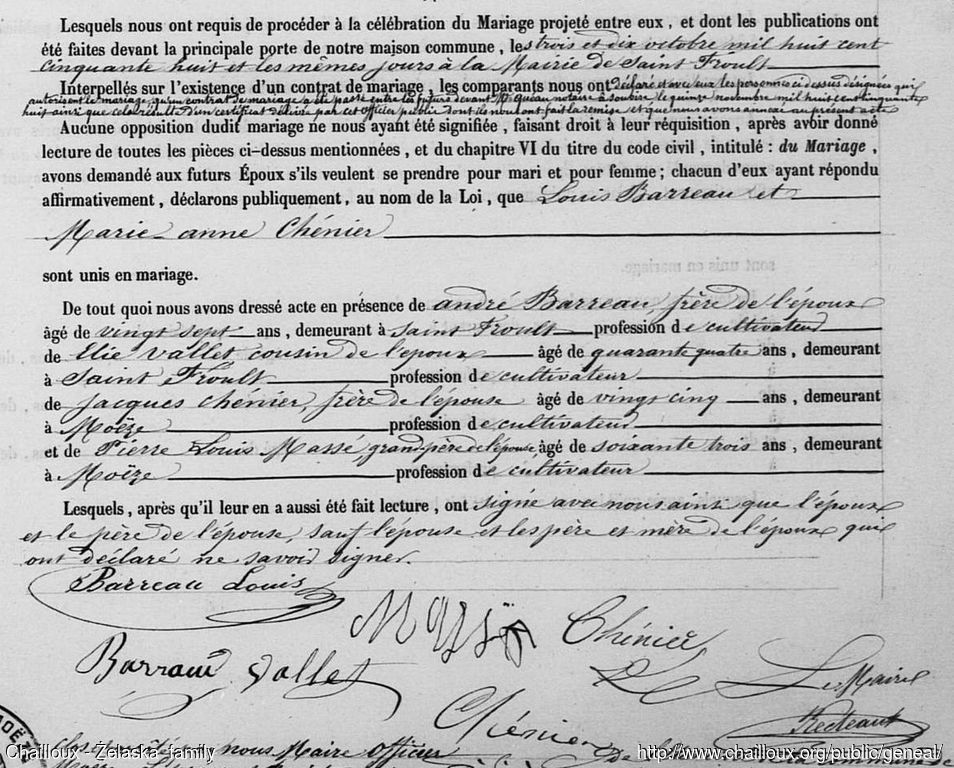 Lesquels nous ont requis de procéder à la célébration du Mariage projeté entre eux, et dont les publications ont
été faites devant la principale porte de notre maison commune, les trois et dix octobre mil huit cent
cinquante huit et les mêmes jours à la Mairie de Saint Froult
Interpellés sur l'existence d'un contrat de mariage, les comparants nous ont déclaré avec eux les personnes ci dessus désignées qui
autorisent le mariage, qu'un contrat de mariage a été passé entre les futurs devant Me notaire à Soubise le quinze novembre mil huit cent cinquante
huit ainsi que cela résulte d'un certificat délivré par cet officier public dont ils nous ont fait la remise et que nous avons annexé au présent acte
Aucune opposition dudit mariage ne nous ayant été signifiée, faisant droit à leur réquisition, après avoir donné
lecture de toutes les pièces ci-dessus mentionnées, et du chapitre VI du titre du code civil, intitulé : du Mariage,
avons demandé aux futurs Époux s'ils veulent se prendre pour mari et pour femme; chacun d'eux ayant répondu
affirmativement, déclarons publiquement, au nom de la Loi, que Louis Barreau et
Marie anne Chénier
sont unis en mariage.
De tout quoi nous avons dressé acte en présence de andré Barreau, frère de l'époux
âgé de vingt sept ans, demeurant à Saint Froult profession de cultivateur
de Elie Vallet cousin de l'époux âgé de quarante quatre ans, demeurant
à Saint Froult profession de cultivateur
de Jacques Chénier, frère de l'épouse âgé de vingt cinq ans, demeurant
à Moëze profession de cultivateur
et de Pierre Louis Massé grand père de l'épouse, âgé de soixante trois ans, demeurant
à Moëze profession de cultivateur
Lesquels, après qu'il leur en a aussi été fait lecture, ont signé avec nous ainsi que l'époux
et le père de l'épouse, sauf l'épouse et les père et mère de l'époux qui
ont déclaré ne savoir signer.
Barreau Louis
Chénier
Barraud Vallet
Le Maire
Chénier
nous Maire officier
Chailloux - Zelaska family
http://www.chailloux.org/public/geneal/